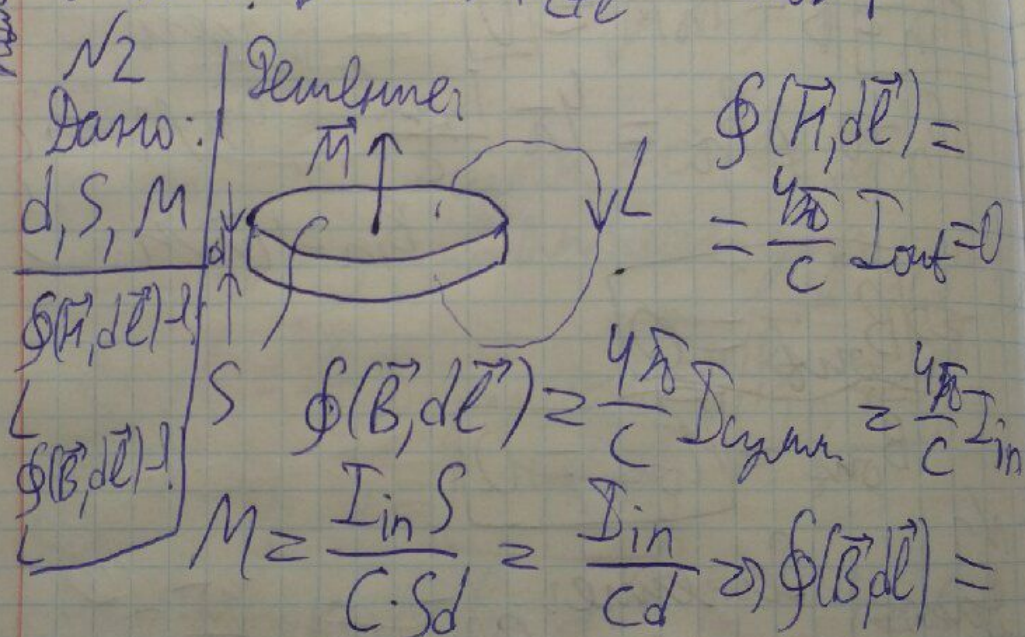 N2
Дано:
d, S, M
∮(H⃗,dl⃗)-?
L
∮(B⃗,dl⃗)-?
L
Решение:
M⃗
d
L
S
∮(H⃗,dl⃗)=
= 4π/c I_out=0
∮(B⃗,dl⃗) = 4π/c I_сумм. = 4π/c I_in
M = I_in S / c·Sd = I_in / cd ⇒ ∮(B⃗,dl⃗) =